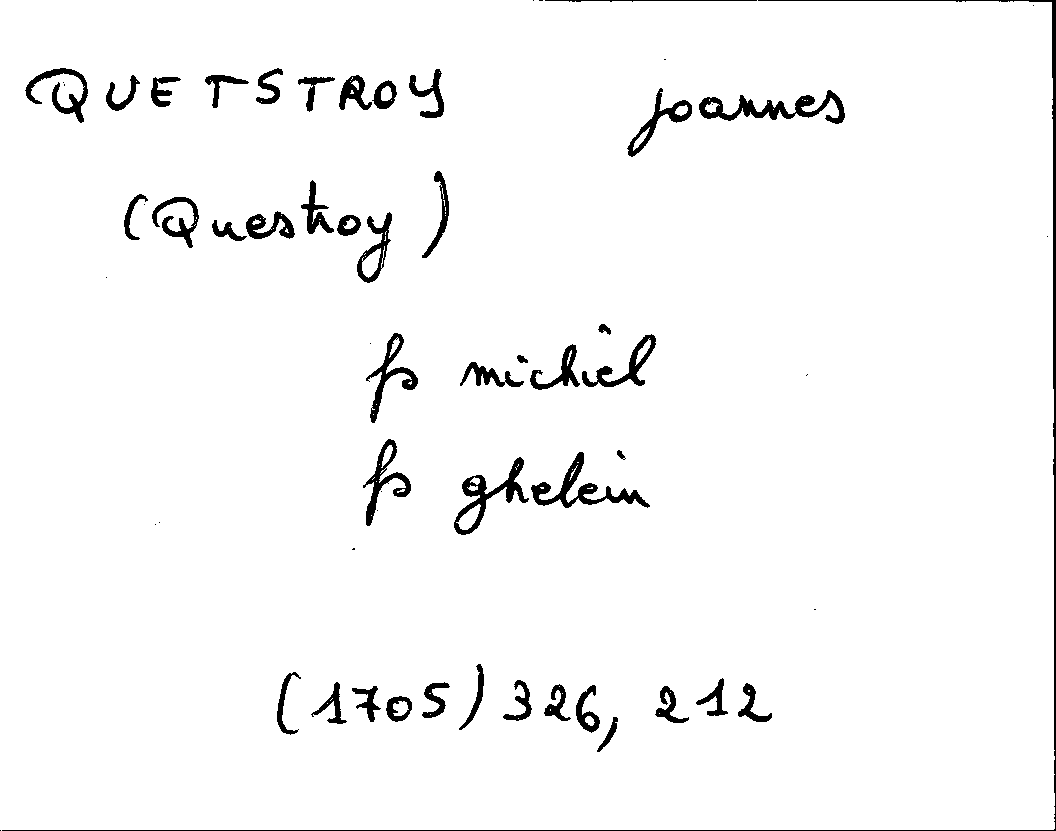 QUETSTROY joannes
(Questroy)
fs michiel
fs ghelein
(1705) 326, 212